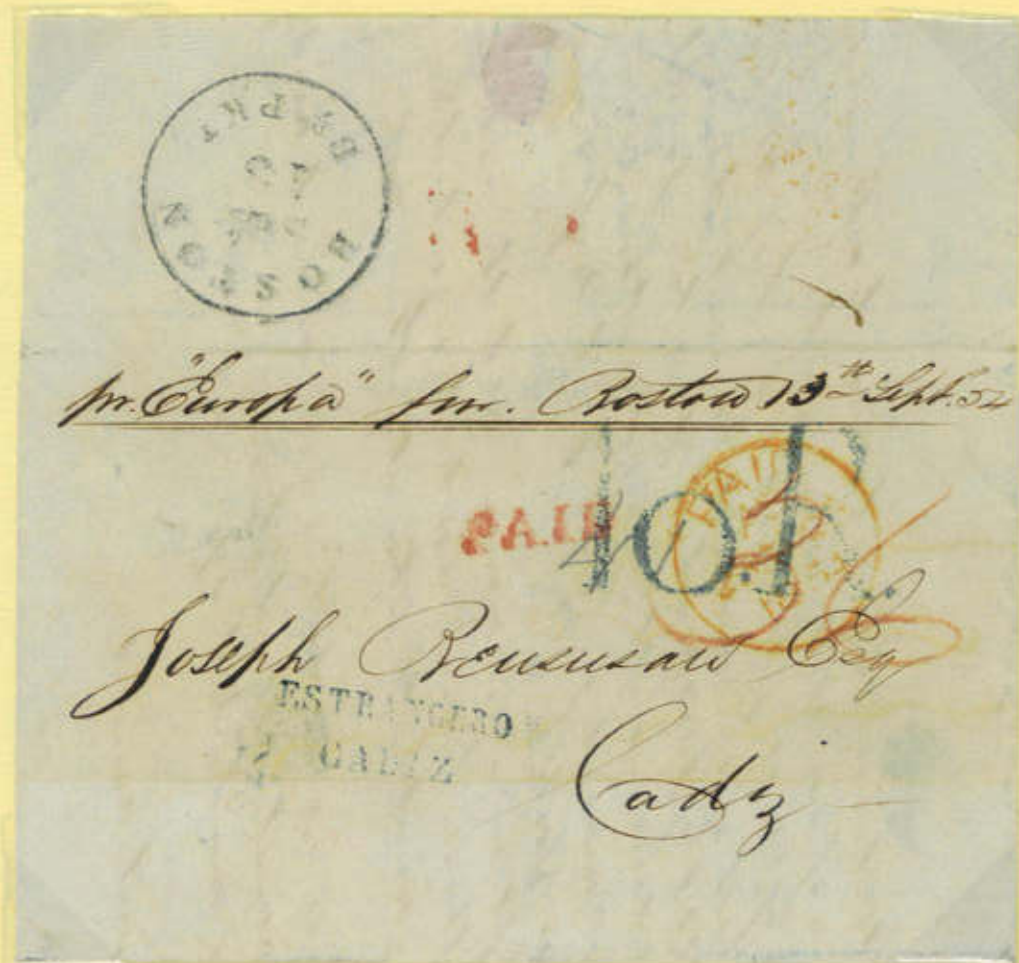 BOSTON
BR. PKT
pr. "Europa" fm. Boston 13th Sept. 54
PAID
PAID
Joseph Bensusan Esq
ESTRANGERO
CADIZ
Cadiz